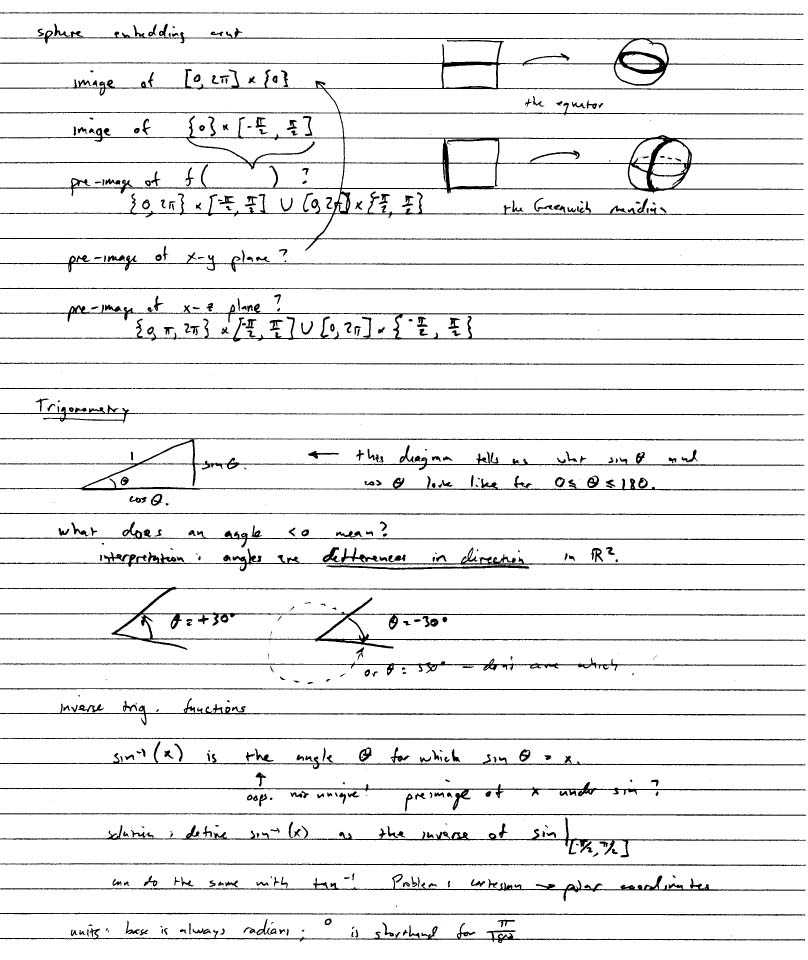 sphere embedding cont
image of [0, 2π] × {0}
the equator
image of {0} × [-π/2, π/2]
pre-image of f(        ) ?
{0, 2π} × [-π/2, π/2] ∪ [0, 2π] × {-π/2, π/2}
the Greenwich meridian
pre-image of x-y plane?
pre-image of x-z plane?
{0, π, 2π} × [-π/2, π/2] ∪ [0, 2π] × {-π/2, π/2}
Trigonometry
1
sin θ.
θ
cos θ.
← this diagram tells us what sin θ and
cos θ look like for 0 ≤ θ ≤ 180.
what does an angle < 0 mean?
interpretation: angles are differences in direction in ℝ².
θ = +30°
θ = -30°
or θ = 330° - don't care which.
inverse trig. functions
sin⁻¹(x) is the angle θ for which sin θ = x.
↑
oops. not unique! preimage of x under sin?
solution: define sin⁻¹(x) as the inverse of sin|[-π/2, π/2]
can do the same with tan⁻¹. Problem: cartesian → polar coordinates
units: base is always radians; ° is shorthand for π/180